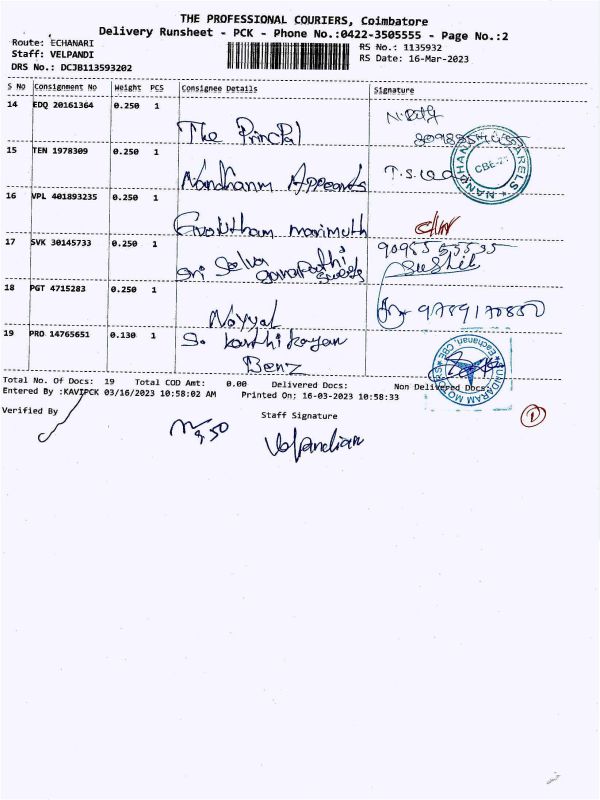 THE PROFESSIONAL COURIERS, Coimbatore
Delivery Runsheet - PCK - Phone No.:0422-3505555 - Page No.:2
Route: ECHANARI
Staff: VELPANDI
DRS No.: DCJB113593202
RS No.: 1135932
RS Date: 16-Mar-2023
S No Consignment No Weight PCS Consignee Details Signature
14 EDQ 20161364 0.250 1
The Princpal
15 TEN 1978309 0.250 1
Nandhanm T.S.
NANDHAN CBE-
16 VPL 401893235 0.250 1
marimuth
17 SVK 30145733 0.250 1
Sri Selva ganapathi 9095555535
Sushil
18 PGT 4715283 0.250 1
Noyyal
19 PRO 14765651 0.130 1
S. karthikayan
Benz
SUNDARAM MOTORS Eachanari, CBE
Total No. Of Docs: 19 Total COD Amt: 0.00 Delivered Docs: Non Delivered Docs:
Entered By :KAVIPCK 03/16/2023 10:58:02 AM Printed On: 16-03-2023 10:58:33
Verified By Staff Signature
Velpandian